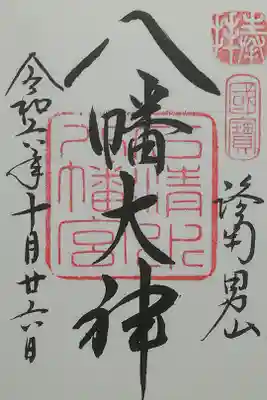 奉拝
國寶
洛南 男山
八幡大神
石清水
八幡宮
令和六年十月廿六日